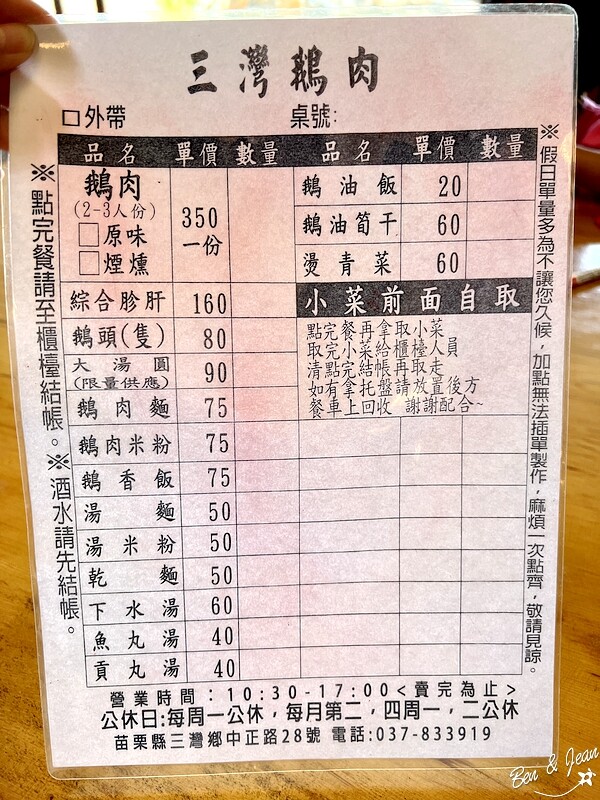 三灣鵝肉
口外帶 桌號:
品名 單價 數量 品名 單價 數量
鵝肉
(2-3人份)
□原味
□煙燻
350
一份
綜合胗肝 160
鵝頭(隻) 80
大湯圓
(限量供應)
90
鵝肉麵 75
鵝肉米粉 75
鵝香飯 75
湯麵 50
湯米粉 50
乾麵 50
下水湯 60
魚丸湯 40
貢丸湯 40
鵝油飯 20
鵝油筍干 60
燙青菜 60
小菜前面自取
點完餐再拿取小菜
取完小菜給櫃檯人員
清點完結帳再取走
如有拿托盤請放置後方
餐車上回收 謝謝配合~
※點完餐請至櫃檯結帳。※酒水請先結帳。
※假日單量多為不讓您久候,加點無法插單製作,麻煩一次點齊,敬請見諒。
營業時間:10:30-17:00<賣完為止>
公休日:每周一公休,每月第二,四周一,二公休
苗栗縣三灣鄉中正路28號 電話:037-833919
Ben & Jean